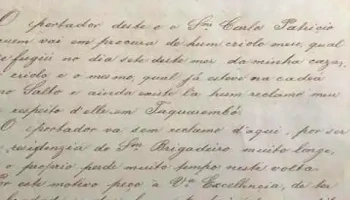 O portador deste é o Snr Carlo Patricio
quem vai em procura de hum criolo meu, qual
se fugiu no dia sete deste mez da minha caza,
criolo é o mesmo, qual já esteve na cadia
do Salto e ainda existe la hum reclamo meu
respeito d'elle em Taquarembó.
O portador va sem reclamo d'aqui, por ser
residenzia do Snr Brigadeiro muito longe,
o proprio perde muito tempo neste volta.
Por este motivo peço a Va Excellencia, de ter